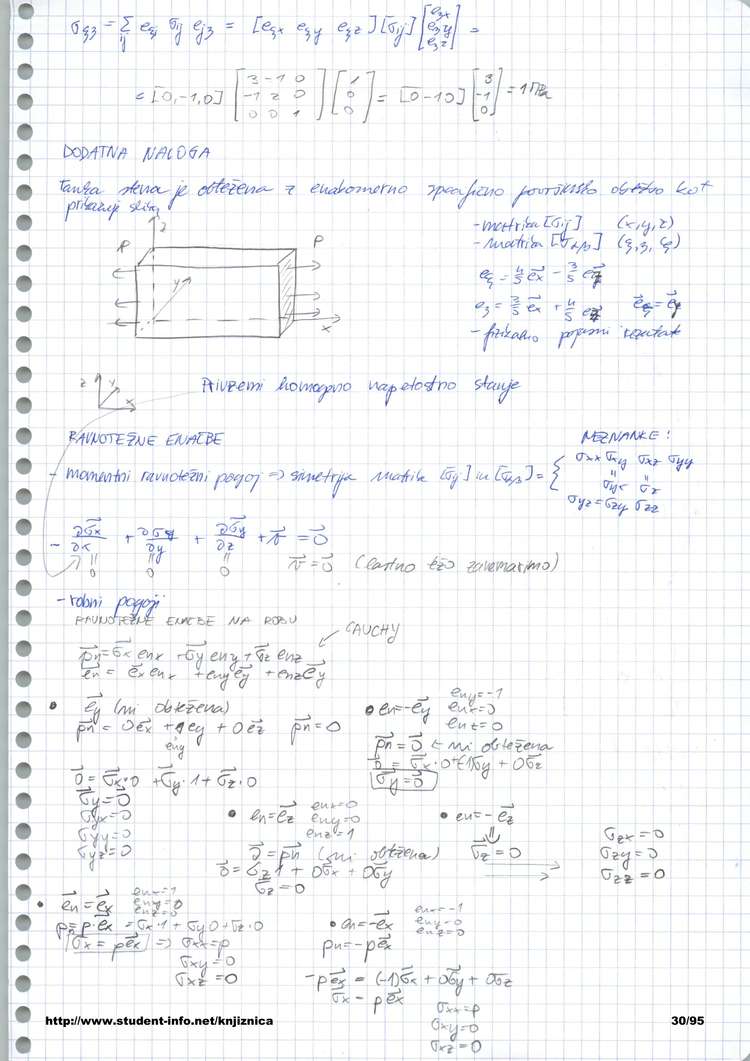 σξζ = Σij eξi σij ejζ = [eξx eξy eξz][σij][eζx eζy eζz] =
= [0,-1,0] [3 -1 0; -1 2 0; 0 0 1] [1 0 0] = [0 -1 0] [3 -1 0] = 1 MPa
DODATNA NALOGA
Tanka stena je obtežena z enakomerno specifično površinsko obtežbo kot
prikazuje slika
- matrika [σij] (x,y,z)
- matrika [σαβ]
z
P
P
y
x
- fizikalno pojasni rezultate
z y x
Privzemi homogeno napetostno stanje
RAVNOTEŽNE ENAČBE
NEZNANKE:
- momentni ravnotežni pogoj => simetrija matrik [σij] in [σαβ] =
σxx σxy σxz σyy
σyz = σzy σzz
- ∂σx/∂x + ∂σy/∂y + ∂σy/∂z + v = 0
0 0 0
v = 0 (lastno težo zanemarimo)
- robni pogoji
RAVNOTEŽNE ENAČBE NA ROBU
CAUCHY
pn = σx enx + σy eny + σz enz
en = ex enx + eny ey + enz ey
• ey (ni obtežena)
pn = 0ex + 1ey + 0ez pn = 0
eny
• en = -ey
eny = -1
enx = 0
enz = 0
pn = 0 ← ni obtežena
0 = σx·0 + (-1)σy + 0σz
σy = 0
0 = σx·0 + σy·1 + σz·0
σy = 0
σyx = 0
σyy = 0
σyz = 0
• en = ez
enx = 0
eny = 0
enz = 1
0 = pn (ni obtežena)
0 = σz1 + 0σx + 0σy
σz = 0
• en = -ez
σz = 0
σzx = 0
σzy = 0
σzz = 0
• en = ex
enx = 1
eny = 0
enz = 0
pn = p·ex = σx·1 + σy0 + σz·0
σx = pex => σxx = p
σxy = 0
σxz = 0
• en = -ex
enx = -1
eny = 0
enz = 0
pn = -pex
-pex = (-1)σx + 0σy + 0σz
σx - pex
σxx = p
σxy = 0
σxz = 0
http://www.student-info.net/knjiznica
30/95